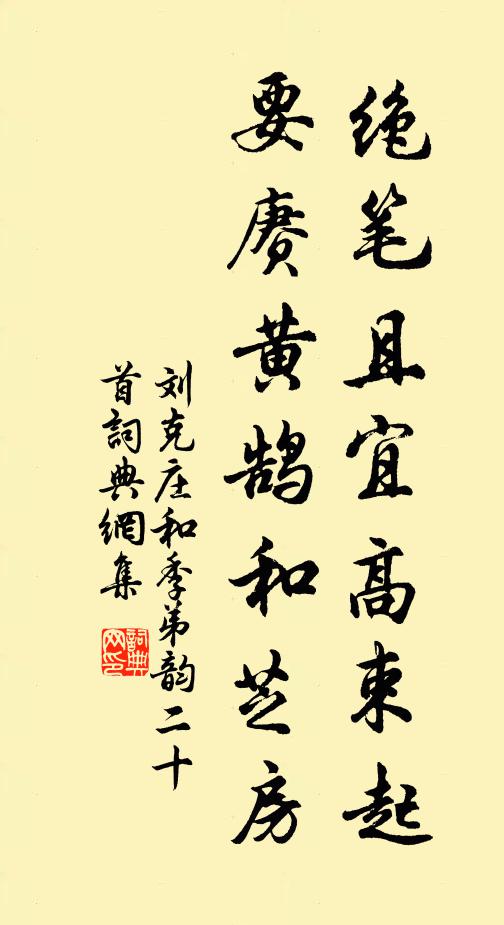 绝笔且宜高束起
要赓黄鹄和芝房
刘克庄和季弟韵二十
首詞典網集
詞典
网印